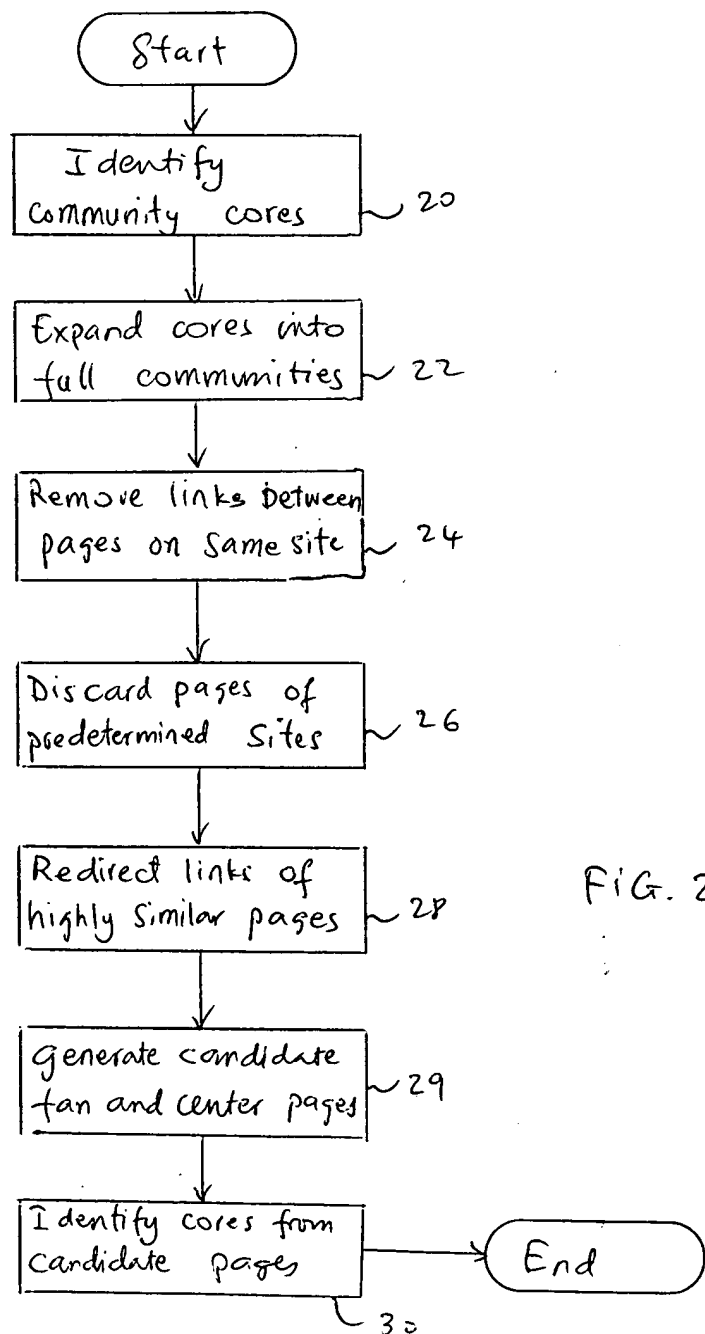 Start
Identify
community cores
20
Expand cores into
full communities
22
Remove links between
pages on same site
24
Discard pages of
predetermined sites
26
Redirect links of
highly similar pages
28
FIG. 2
Generate candidate
fan and center pages
29
Identify cores from
candidate pages
30
End